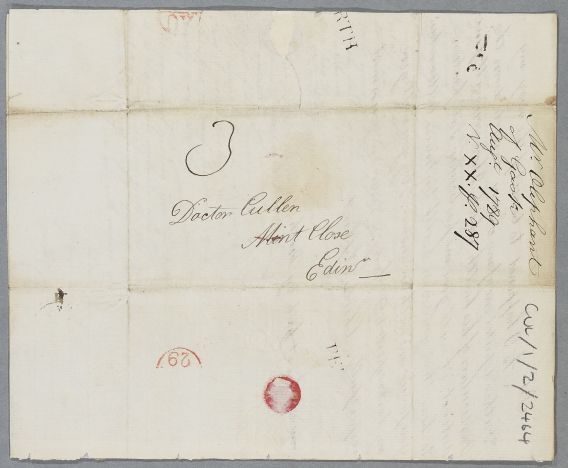 3
Doctor Cullen
Mint Close
Edinr
Mr. Oliphant
of Gask
Augt. 1789
N. XX. p. 287
CUL/1/2/2464
RTH
29
PE